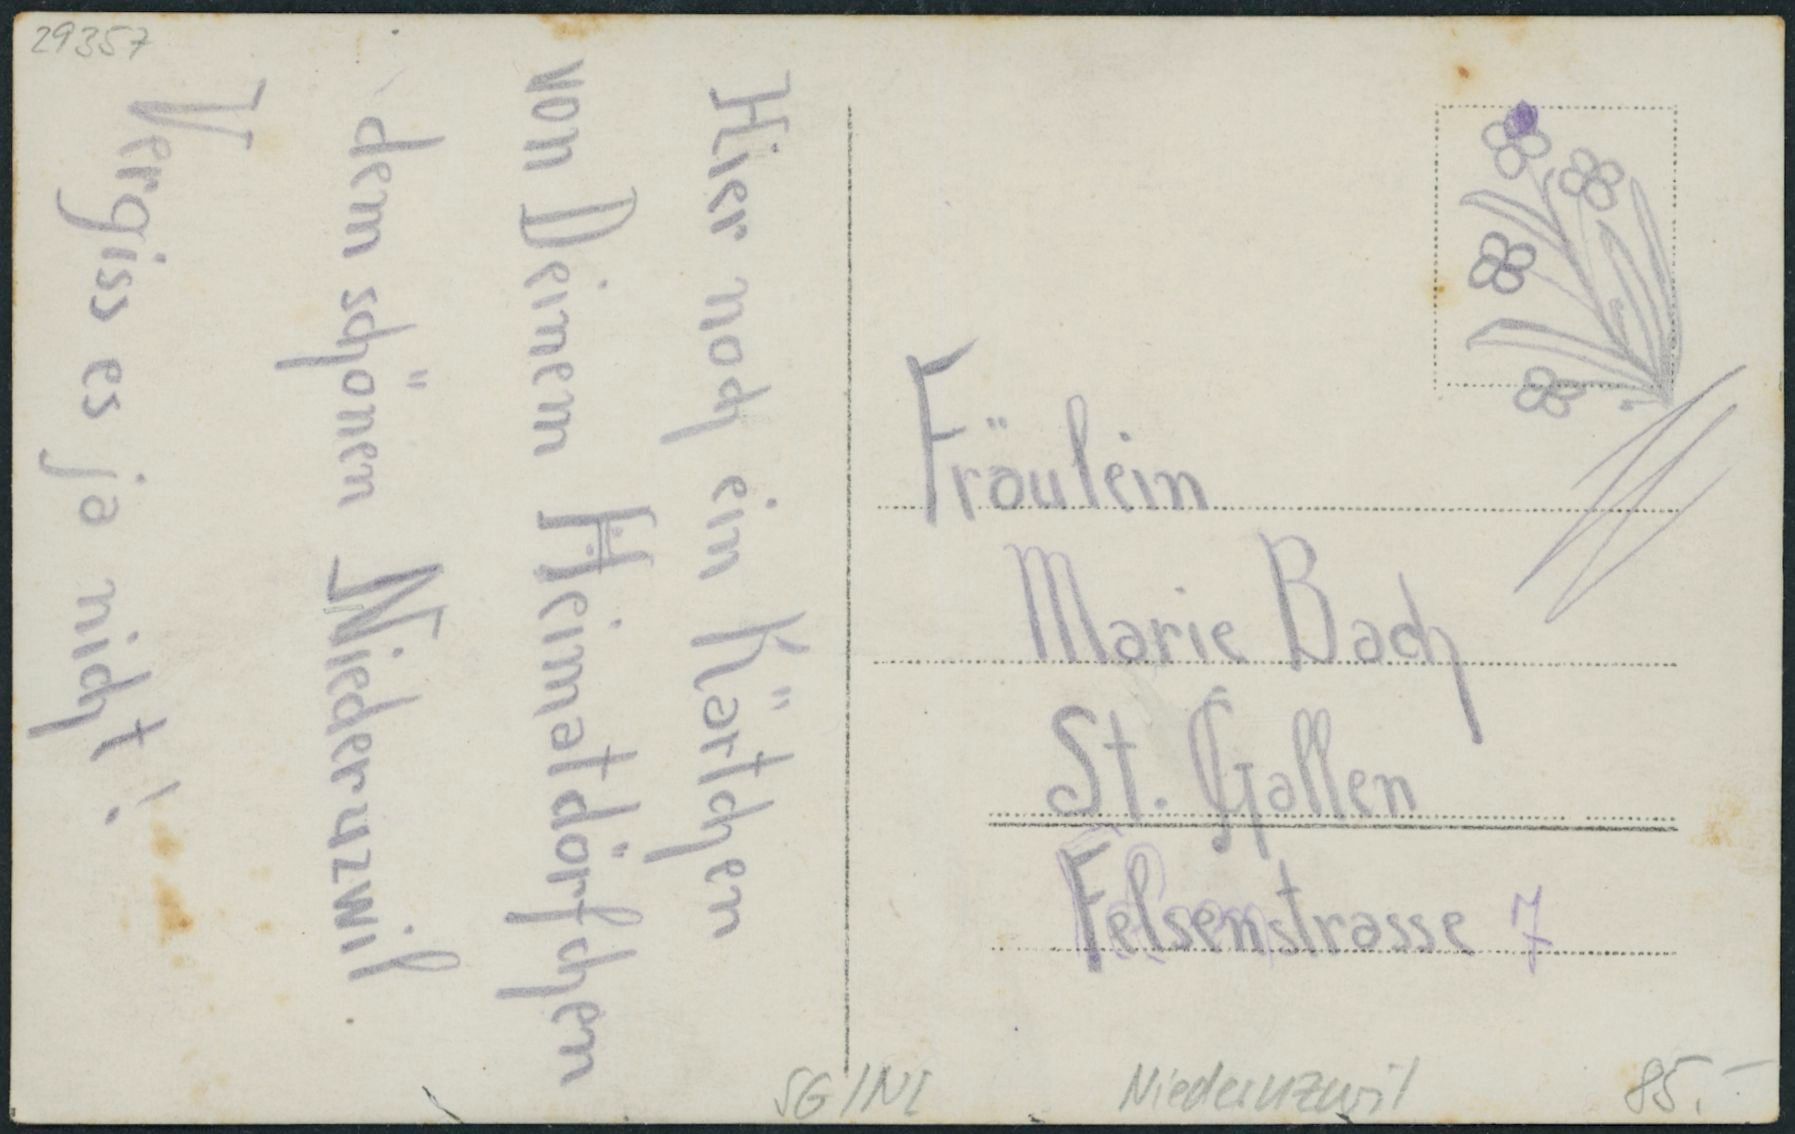 29357
Hier noch ein Kärtchen
von Deinem Heimatdörfchen
dem schönen Niederuzwil
Vergiss es ja nicht!
Fräulein
Marie Bach
St. Gallen
Felsenstrasse 7
Niederuzwil
85.-